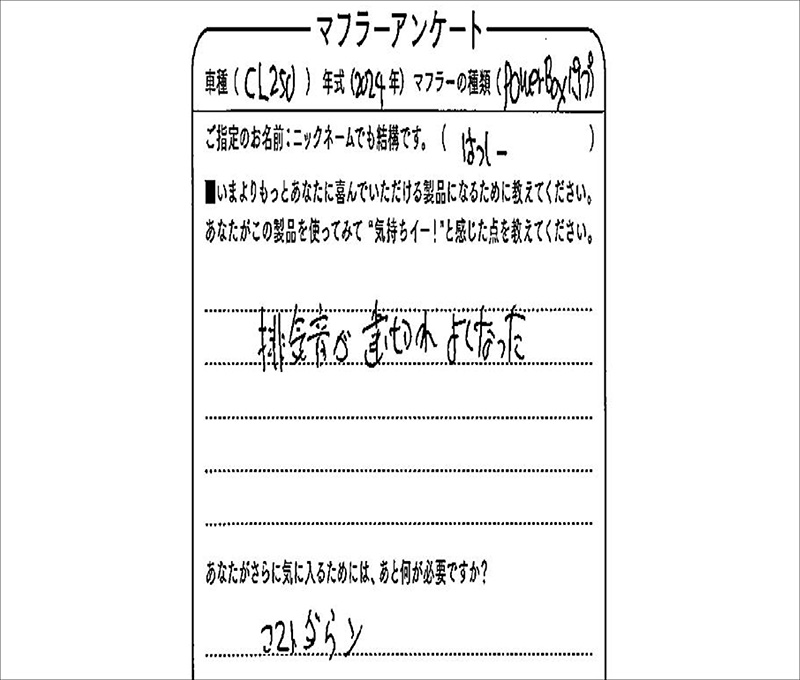 マフラーアンケート
車種(CL250) 年式(2024年) マフラーの種類(PowerBoxパイプ)
ご指定のお名前:ニックネームでも結構です。( はっしー )
■いまよりもっとあなたに喜んでいただける製品になるために教えてください。
あなたがこの製品を使ってみて“気持ちイー!”と感じた点を教えてください。
排気音が 歯切れ よくなった
あなたがさらに気に入るためには、あと何が必要ですか?
コストダウン